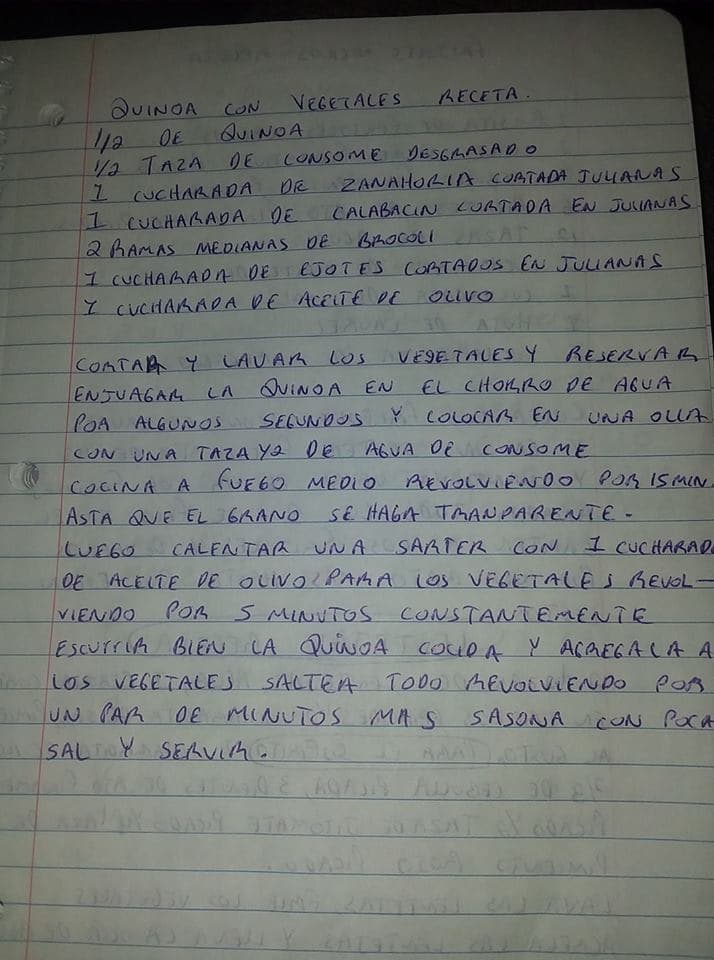 QUINOA CON VEGETALES RECETA.
1/2 DE QUINOA
1/2 TAZA DE CONSOME DESGRASADO
1 CUCHARADA DE ZANAHORIA CORTADA JULIANAS
1 CUCHARADA DE CALABACIN CORTADA EN JULIANAS
2 RAMAS MEDIANAS DE BROCOLI
1 CUCHARADA DE EJOTES CORTADOS EN JULIANAS
1 CUCHARADA DE ACEITE DE OLIVO
CORTAR Y LAVAR LOS VEGETALES Y RESERVAR
ENJUAGAR LA QUINOA EN EL CHORRO DE AGUA
POR ALGUNOS SEGUNDOS Y COLOCAR EN UNA OLLA
CON UNA TAZA Y2 DE AGUA DE CONSOME
COCINA A FUEGO MEDIO REVOLVIENDO POR 15 MIN.
ASTA QUE EL GRANO SE HAGA TRANPARENTE.
LUEGO CALENTAR UNA SARTER CON 1 CUCHARAD
DE ACEITE DE OLIVO PARA LOS VEGETALES REVOL-
VIENDO POR 5 MINUTOS CONSTANTEMENTE
ESCURRIR BIEN LA QUINOA COCIDA Y AGREGALA A
LOS VEGETALES SALTEA TODO REVOLVIENDO POR
UN PAR DE MINUTOS MAS SASONA CON POCA
SAL Y SERVIR.